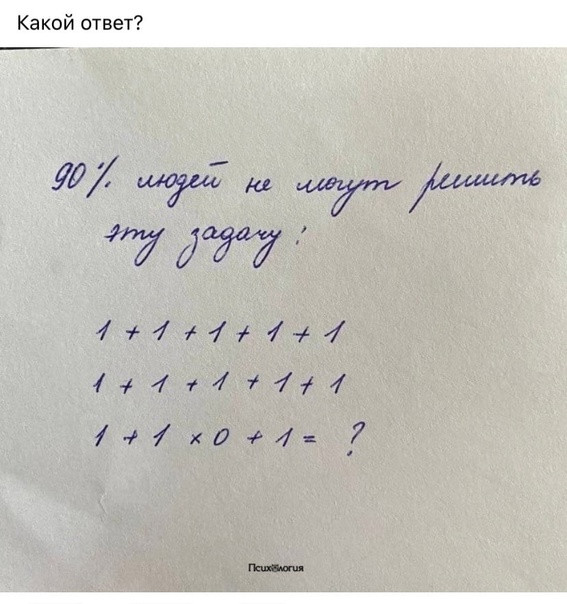 Какой ответ?
90% людей не могут решить
эту задачу:
1 + 1 + 1 + 1 + 1
1 + 1 + 1 + 1 + 1
1 + 1 × 0 + 1 = ?
Психология